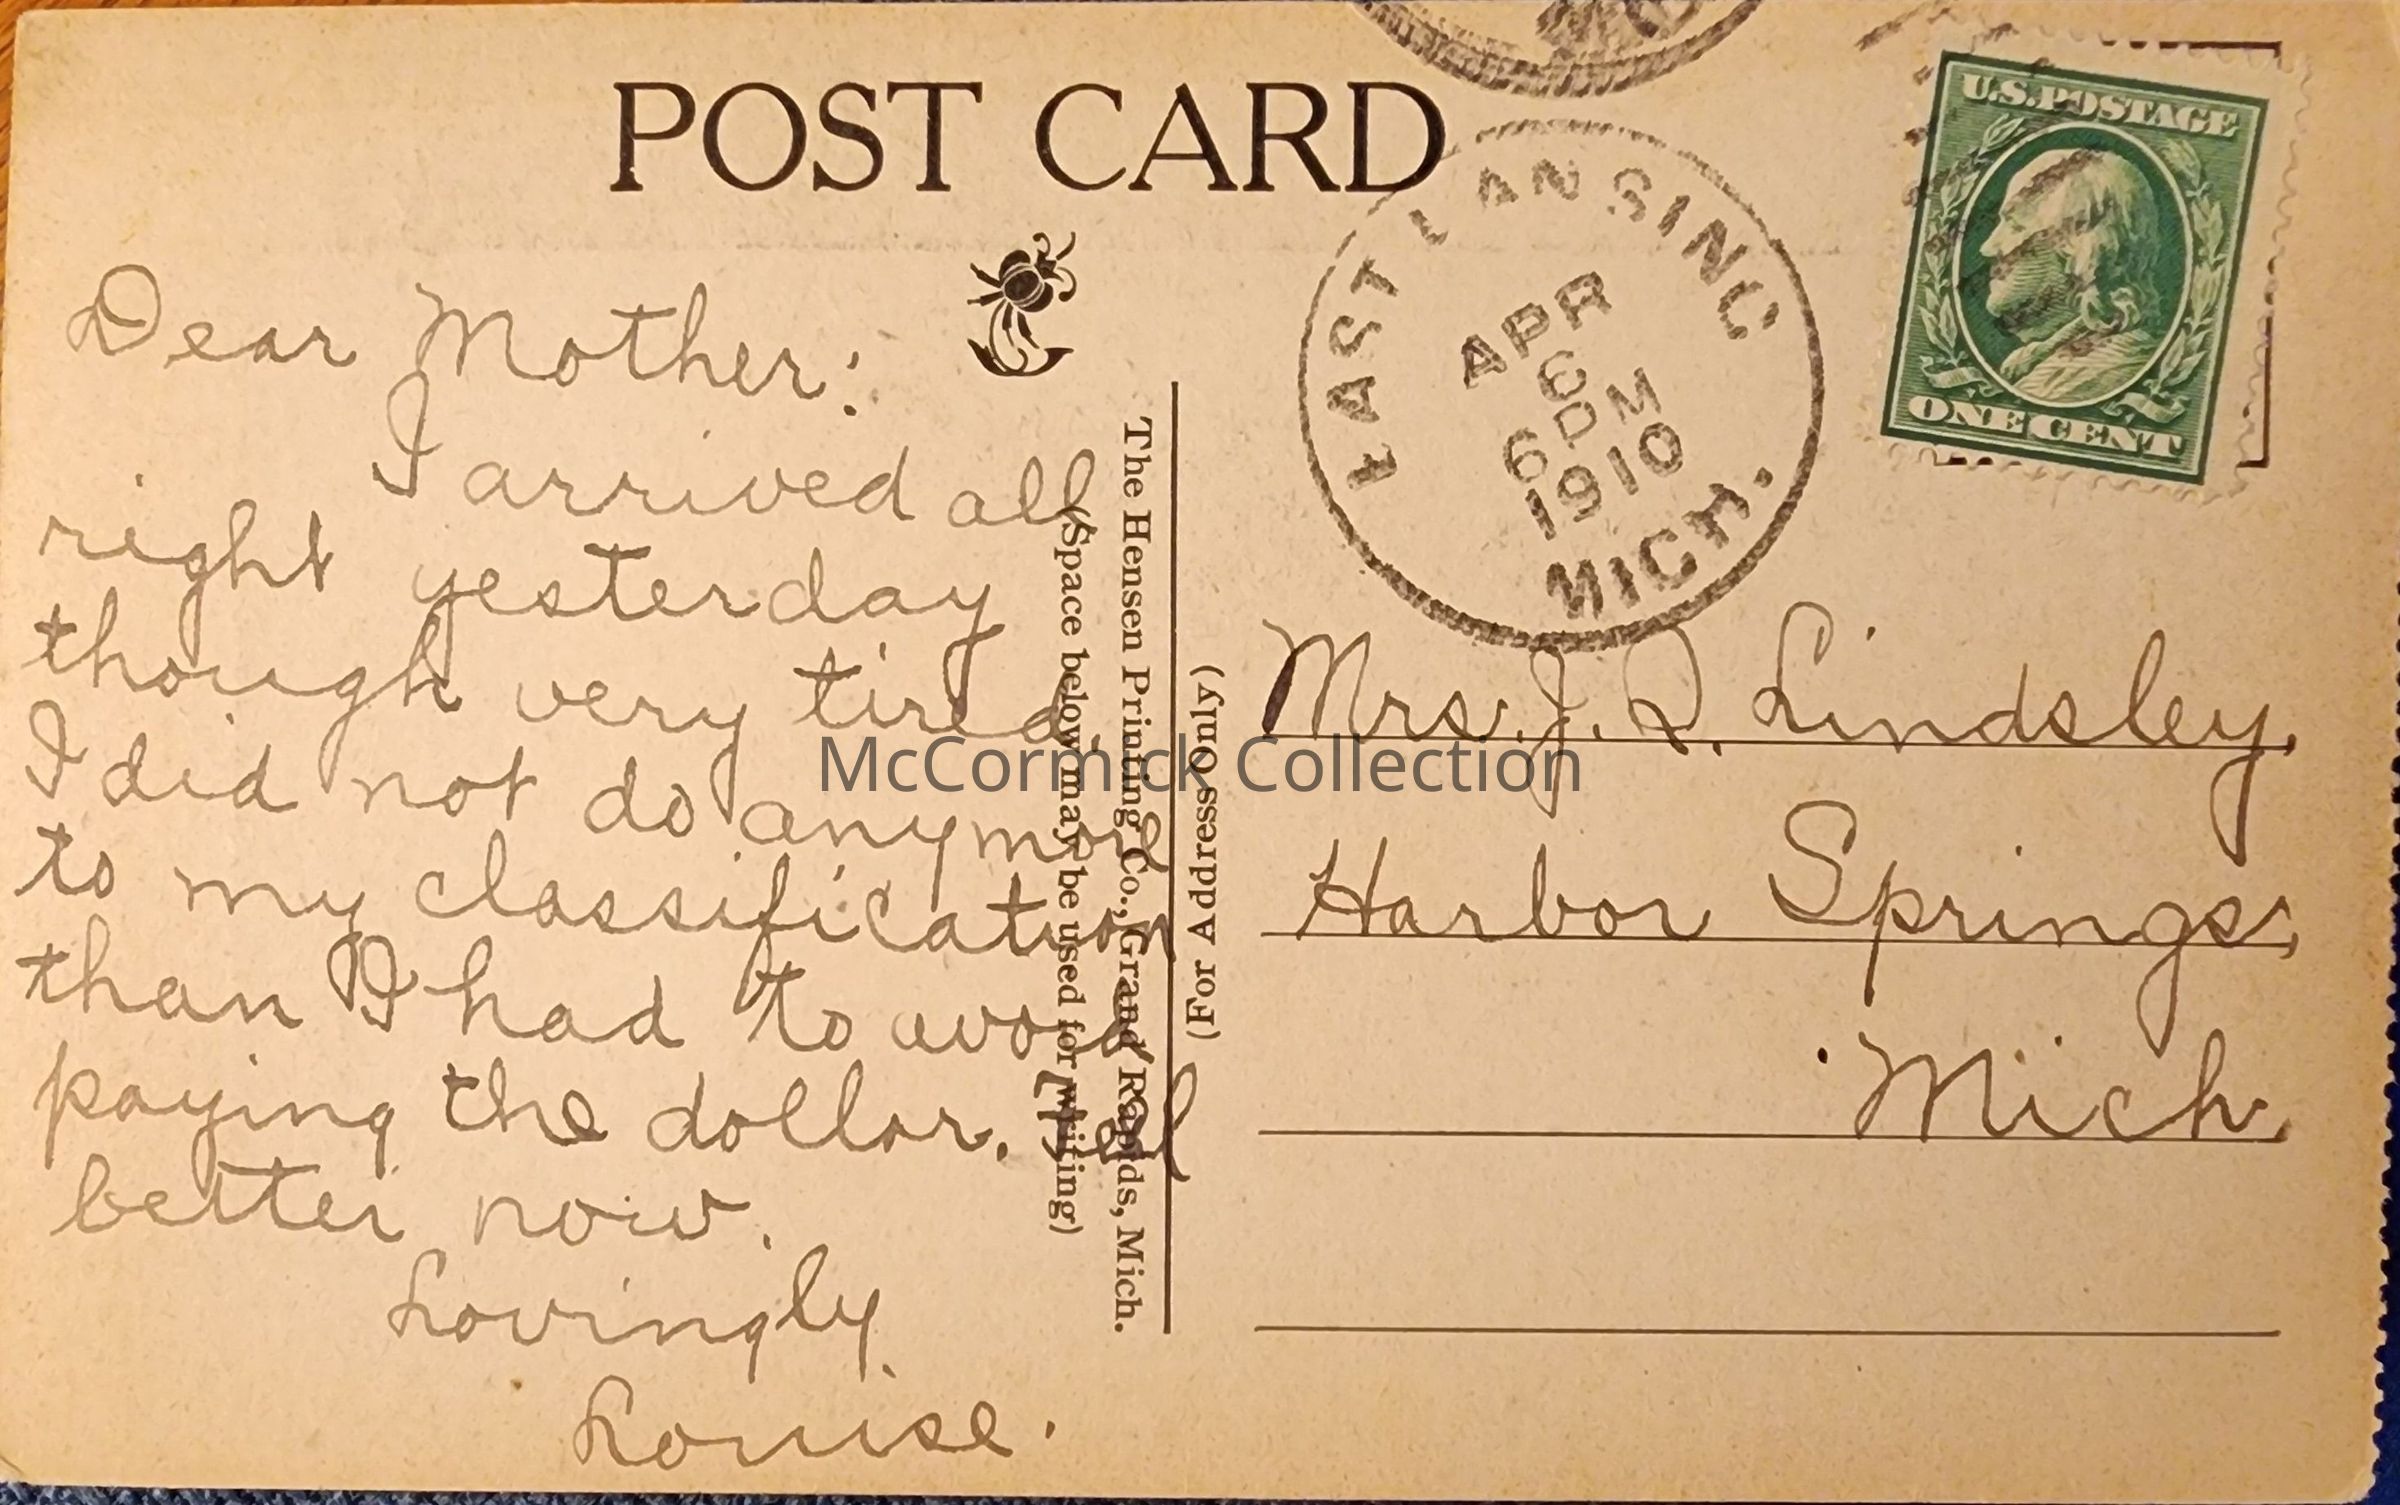 POST CARD
EAST LANSING
APR
6
6 PM
1910
MICH.
U.S. POSTAGE
ONE CENT
Dear Mother:
I arrived all
right yesterday
though very tired.
I did not do any more
to my classification
than I had to avoid
paying the dollar. Feel
better now.
Lovingly,
Louise.
(Space below may be used for writing)
The Hensen Printing Co., Grand Rapids, Mich.
(For Address Only)
Mrs. J. Q. Lindsley,
Harbor Springs,
Mich.
McCormick Collection